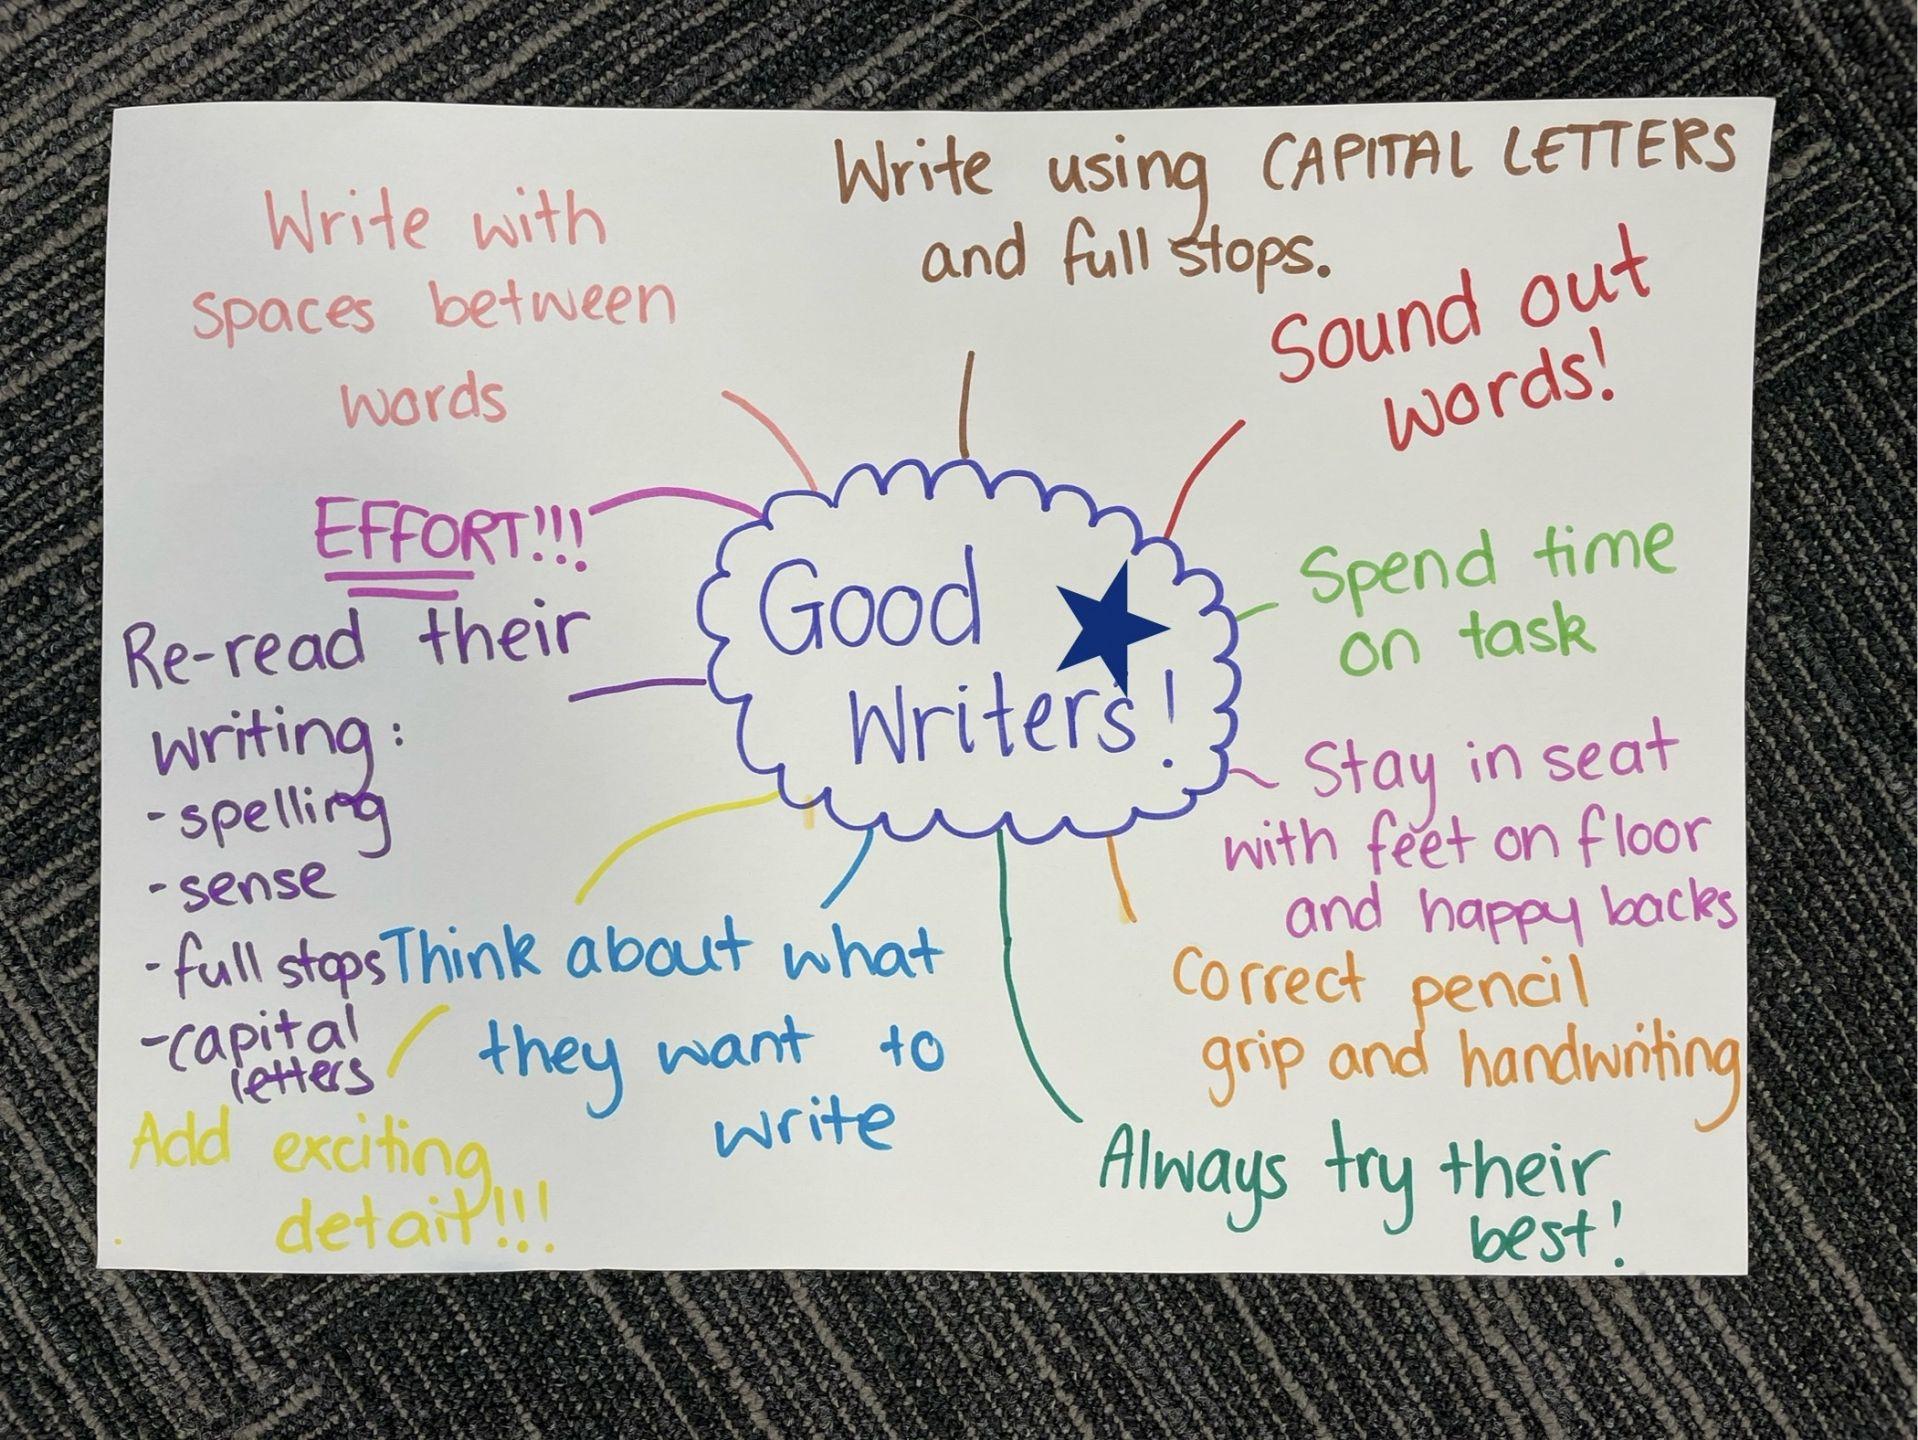 Write using CAPITAL LETTERS
and full stops.
Write with
spaces between
words
Sound out
words!
EFFORT!!!
Good
Writers!
Spend time
on task
Re-read their
writing:
- spelling
- sense
- full stops
- capital
letters
Stay in seat
with feet on floor
and happy backs
Think about what
they want to
write
Correct pencil
grip and handwriting
Add exciting
detail!!!
Always try their
best!